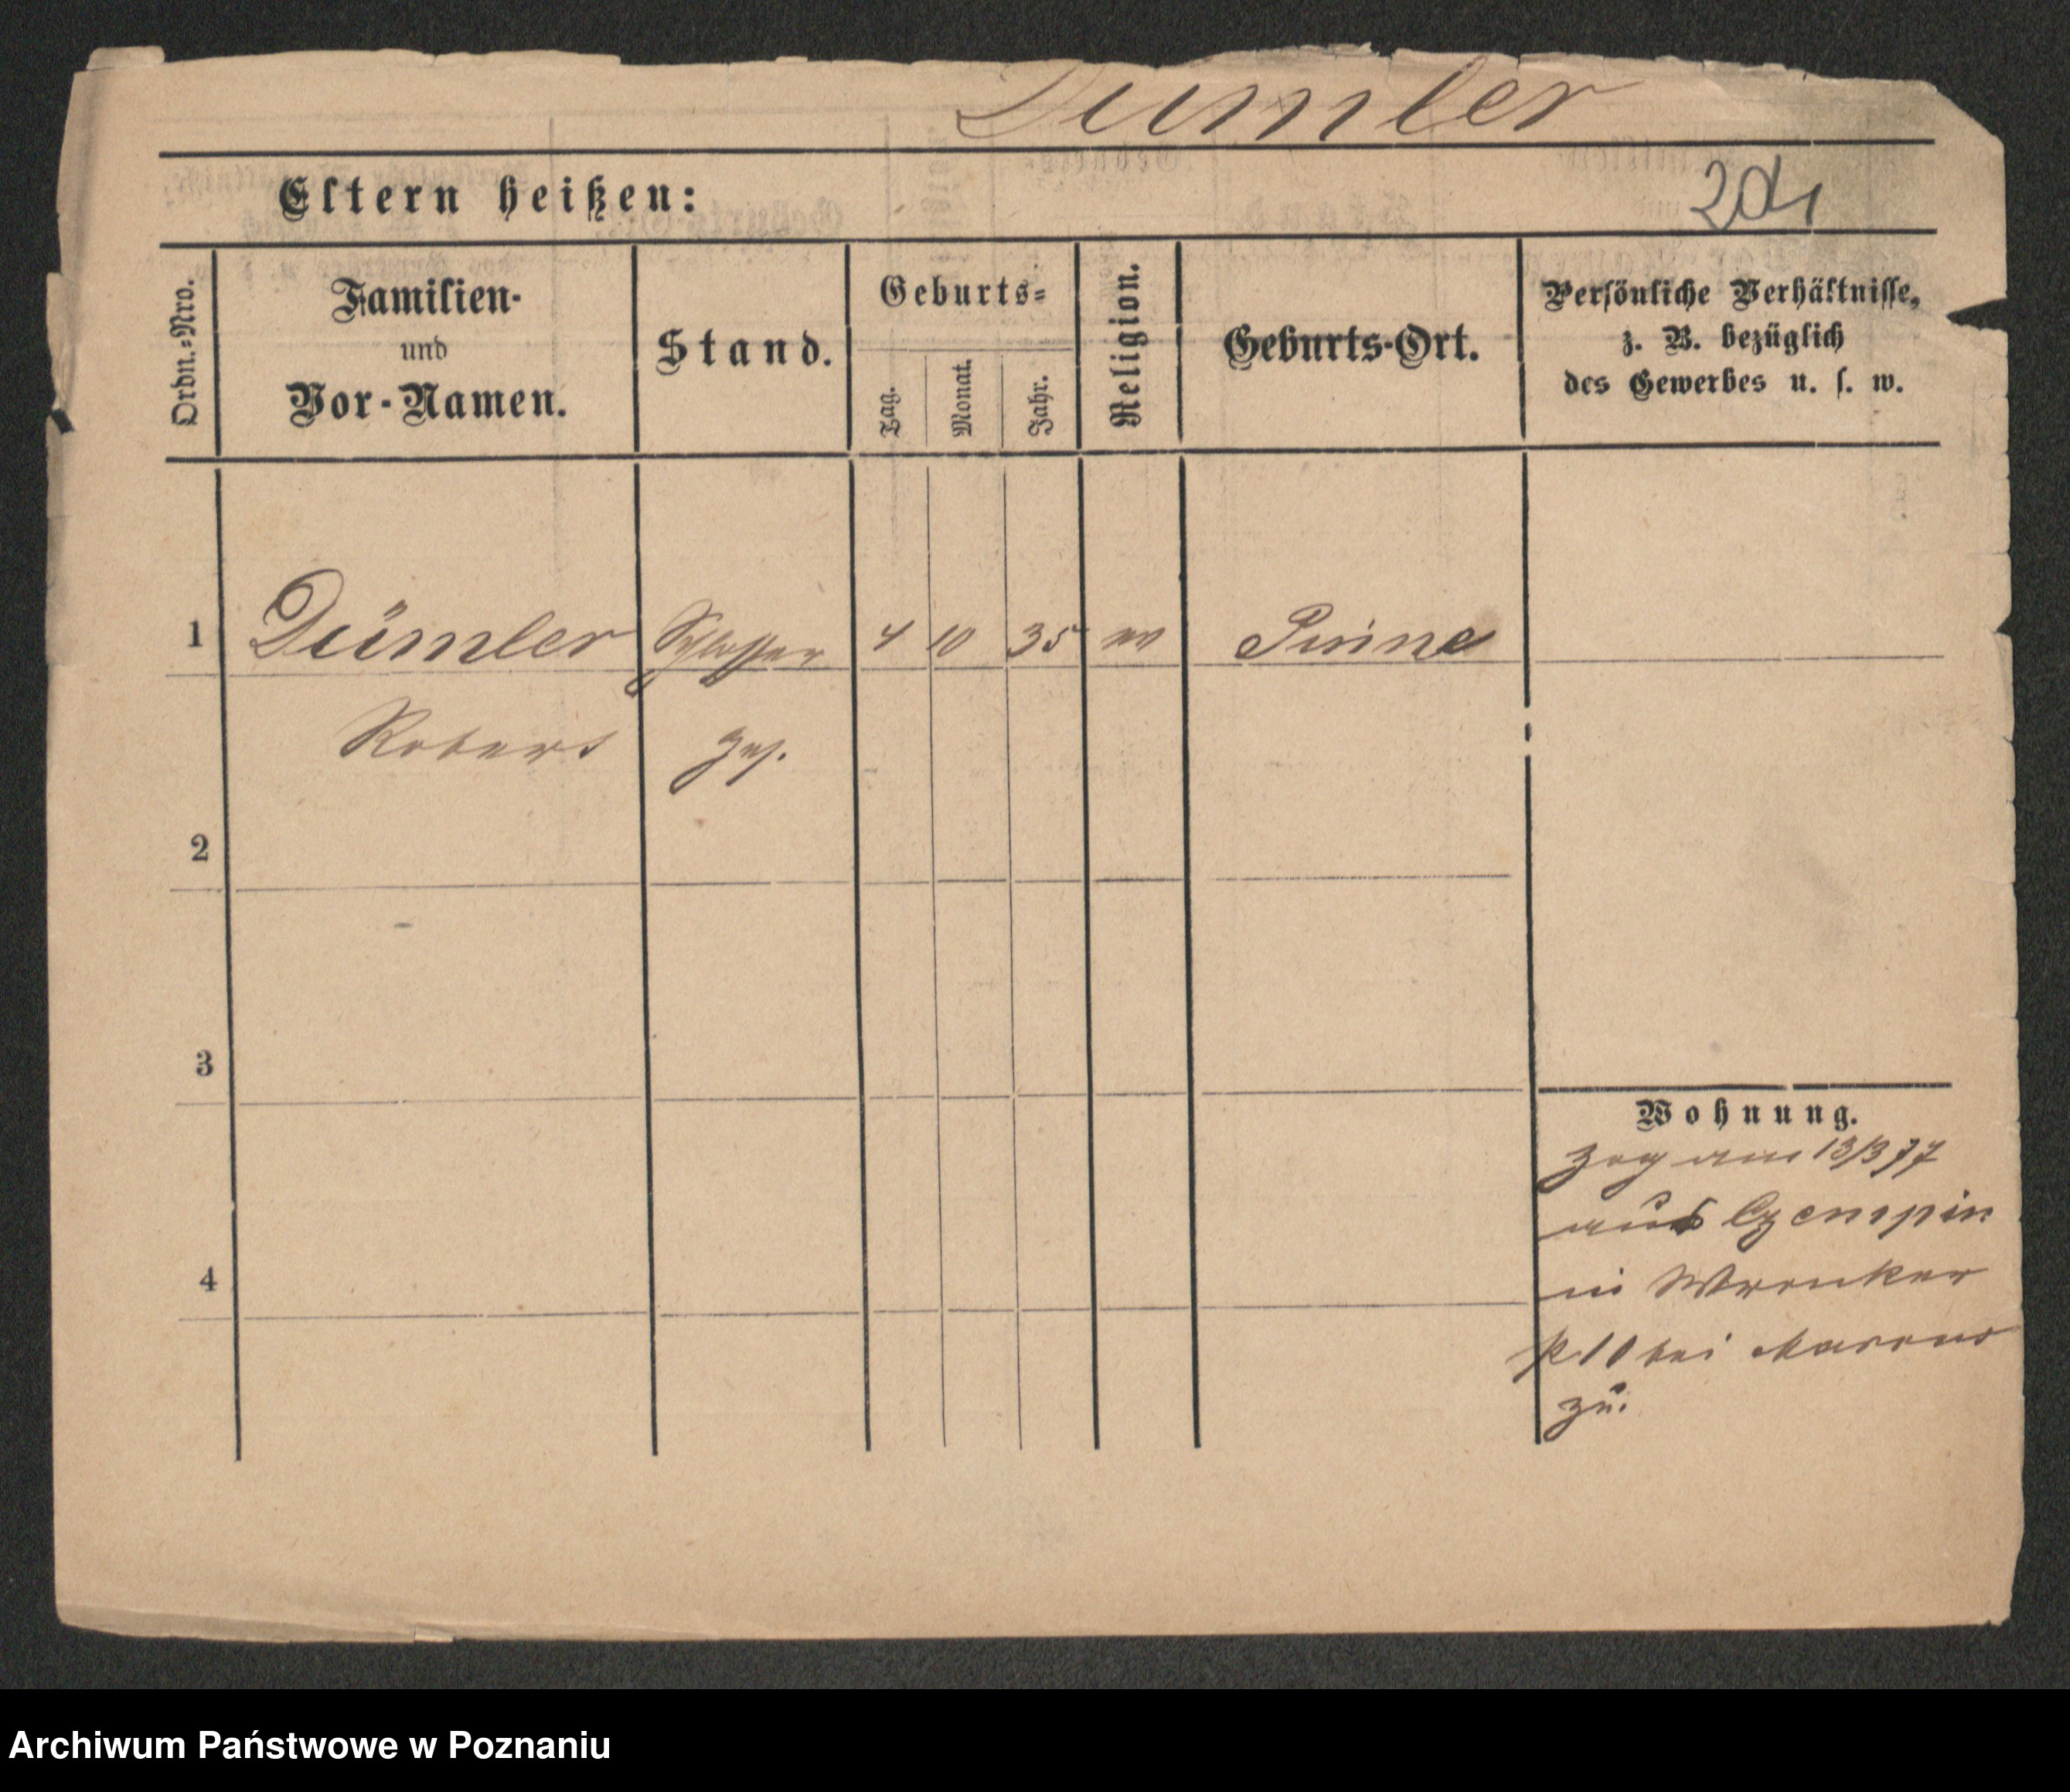 Dümler
204
Eltern heißen:
Ordn.=Nro.
Familien-
und
Vor-Namen.
Stand.
Geburts=
Tag.
Monat.
Jahr.
Religion.
Geburts-Ort.
Persönliche Verhältnisse,
z. B. bezüglich
des Gewerbes u. s. w.
1 Dümler Schlosser 4 10 35 ev Pinne
Robert
2
3
4
Wohnung.
Zog am 13/3 77
aus Czempin
in Wronker
10 bei
zu.
Archiwum Państwowe w Poznaniu